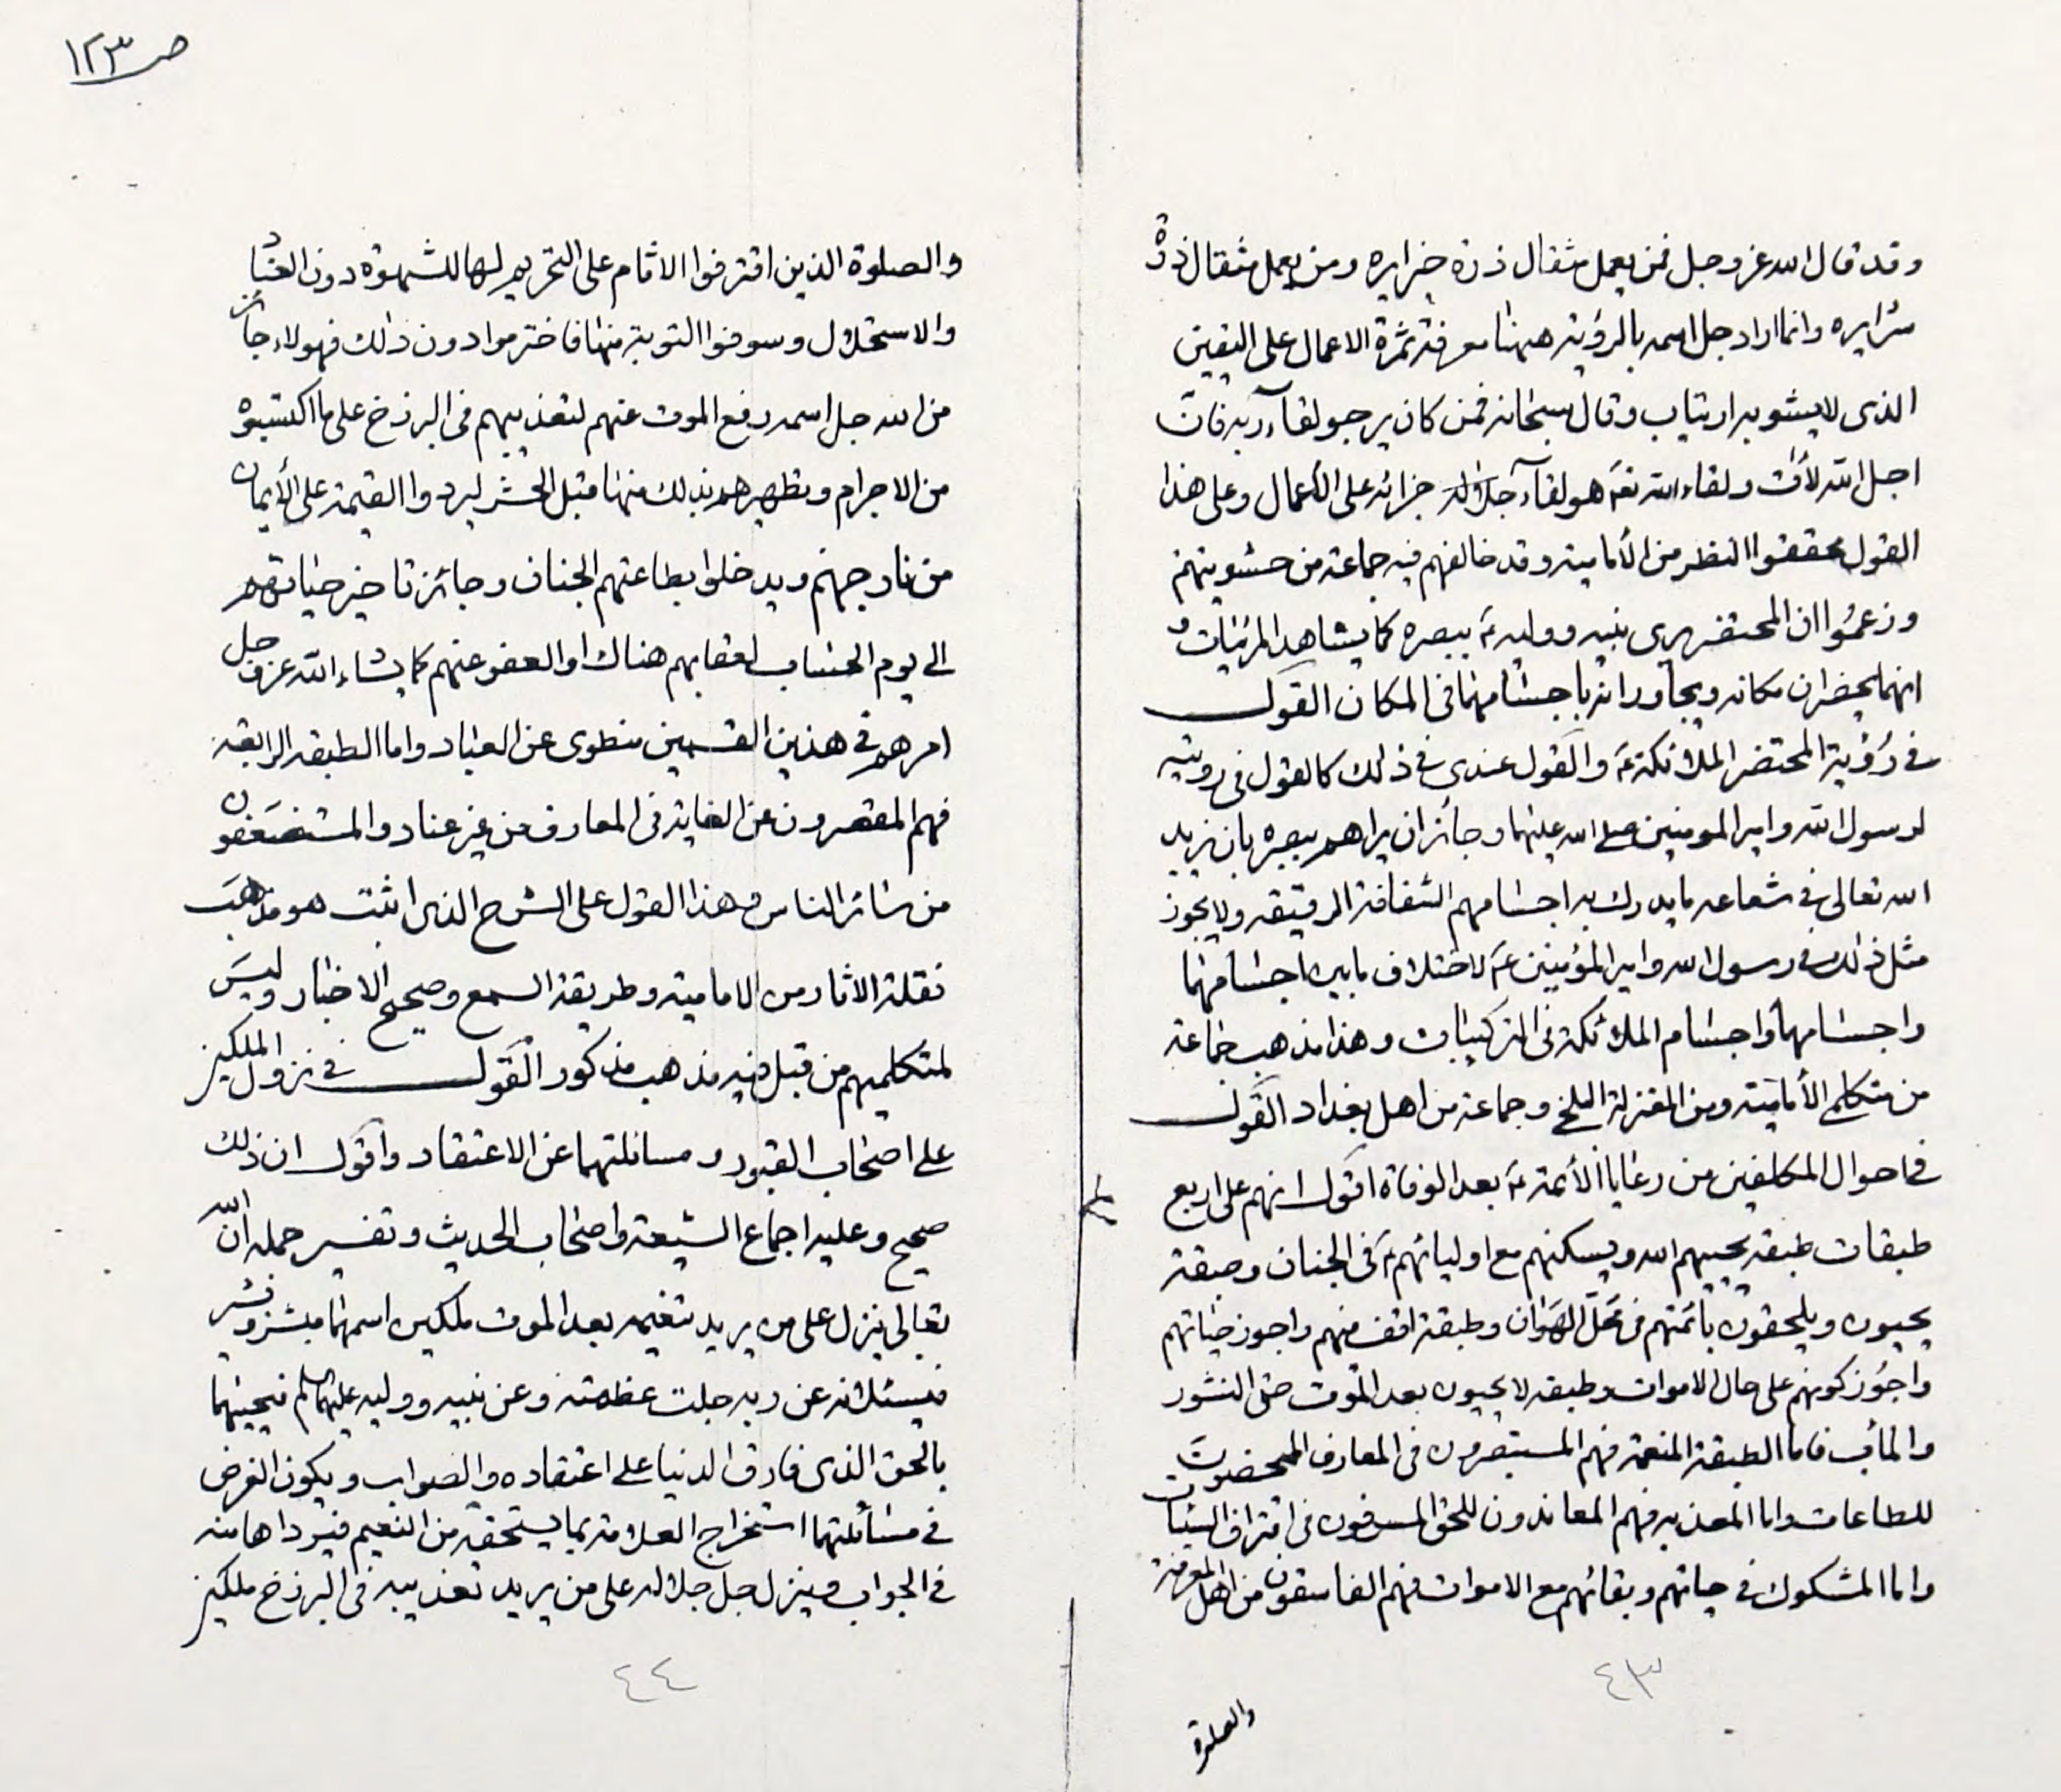 وقد قال الله عز وجل فمن يعمل مثقال ذرة خيرا يره ومن يعمل مثقال ذرة
شرا يره وانما اراد جل اسمه بالرؤية ههنا معرفة ثمرة الاعمال على اليقين
الذى لا يشوبه ارتياب وقال سبحانه فمن كان يرجو لقآء ربه فان
اجل الله لآت ولقاء الله تعه هو لقآء جزائه على الأعمال وعلى هذا
القول محققوا النظر من الأمامية وقد خالفهم فيه جماعة من حشويتهم
وزعموا ان المحتضر يرى نبيه ووليه ع ببصره كما يشاهد المرئيات و
انهما يحضران مكانه ويجاورانه باجسامهما فى المكان القول
فى رؤية المحتضر الملائكة ع والقول عندى فى ذلك كالقول فى روية
لرسول الله وامير المومنين صلى الله عليهما وجائز ان يراهم ببصره بان يزيد
الله تعالى فى شعاعه ما يدرك به اجسامهم الشفافة الرقيقه ولا يجوز
مثل ذلك فى رسول الله وامير المؤمنين ع لاختلاف ما بين اجسامهما
واجسامهما واجسام الملائكة فى التركيبات وهذا مذهب جماعة
من متكلمى الأمامية ومن المعتزلة البلخى وجماعة من اهل بغداد القول
فى احوال المكلفين من رعايا الأئمة ع بعد الوفاة اقول انهم على اربع
طبقات طبقه يحييهم الله ويسكنهم مع اوليائهم ع فى الجنان وطبقة
يحيون ويلحقون بائمتهم فى محل الهوان وطبقة اقف منهم واجوز حياتهم
واجوز كونهم على حال الاموات وطبقه لا يحيون بعد الموت حتى النشور
والمآب فاما الطبقة المنعمة فهم المستبصرون فى المعارف المتمحضون
للطاعات واما المعذبه فهم المعاندون للحق المسرفون فى اقتراف السيئات
واما المشكوك فى حياتهم وبقائهم مع الاموات فهم الفاسقون من اهل المعرفة
٤٣
والصلوة
ص ١٢٣
والصلوة الذين اقترفوا الاثام على التحريم لها للشهوة دون العناد
والاستحلال وسوفوا التوبة منها فاخترموا دون ذلك فهولاء جائز
من الله جل اسمه رفع الموت عنهم لتعذيبهم فى البرزخ على ما اكتسبوه
من الاجرام وتطهيرهم بذلك منها قبل الحشر ليردوا القيمة على الأيمان
من نار جهنم ويدخلوا بطاعتهم الجنان وجائز تاخير حياتهم
الى يوم الحساب لعقابهم هناك او العفو عنهم كما يشاء الله عز و جل
امرهم فى هذين القسمين منطوى عن العباد واما الطبقه الرابعة
فهم المقصرون عن الغاية فى المعارف من غير عناد والمستضعفون
من سائر الناس وهذا القول على الشرح الذى اثبت هو مذهب
نقلة الاثار من الامامية وطريقة السمع وصحيح الاخبار وليس
لمتكلميهم من قبل فيه مذهب مذكور القول فى نزول الملكين
على اصحاب القبور ومسائلتهما عن الاعتقاد واقول ان ذلك
صحيح وعليه اجماع الشيعة واصحاب الحديث وتفسير جمله ان الله
تعالى ينزل على من يريد تنعيمه بعد الموت ملكين اسمهما مبشر وبشير
فيسئلانه عن ربه جلت عظمته وعن نبيه ووليه عليهما السلم فيجيبهما
بالحق الذى فارق الدنيا على اعتقاده والصواب ويكون الغرض
فى مسائلتهما استخراج العلامة بما يستحقه من النعيم فيردها منه
فى الجواب وينزل جل جلاله على من يريد تعذيبه فى البرزخ ملكين
٤٤